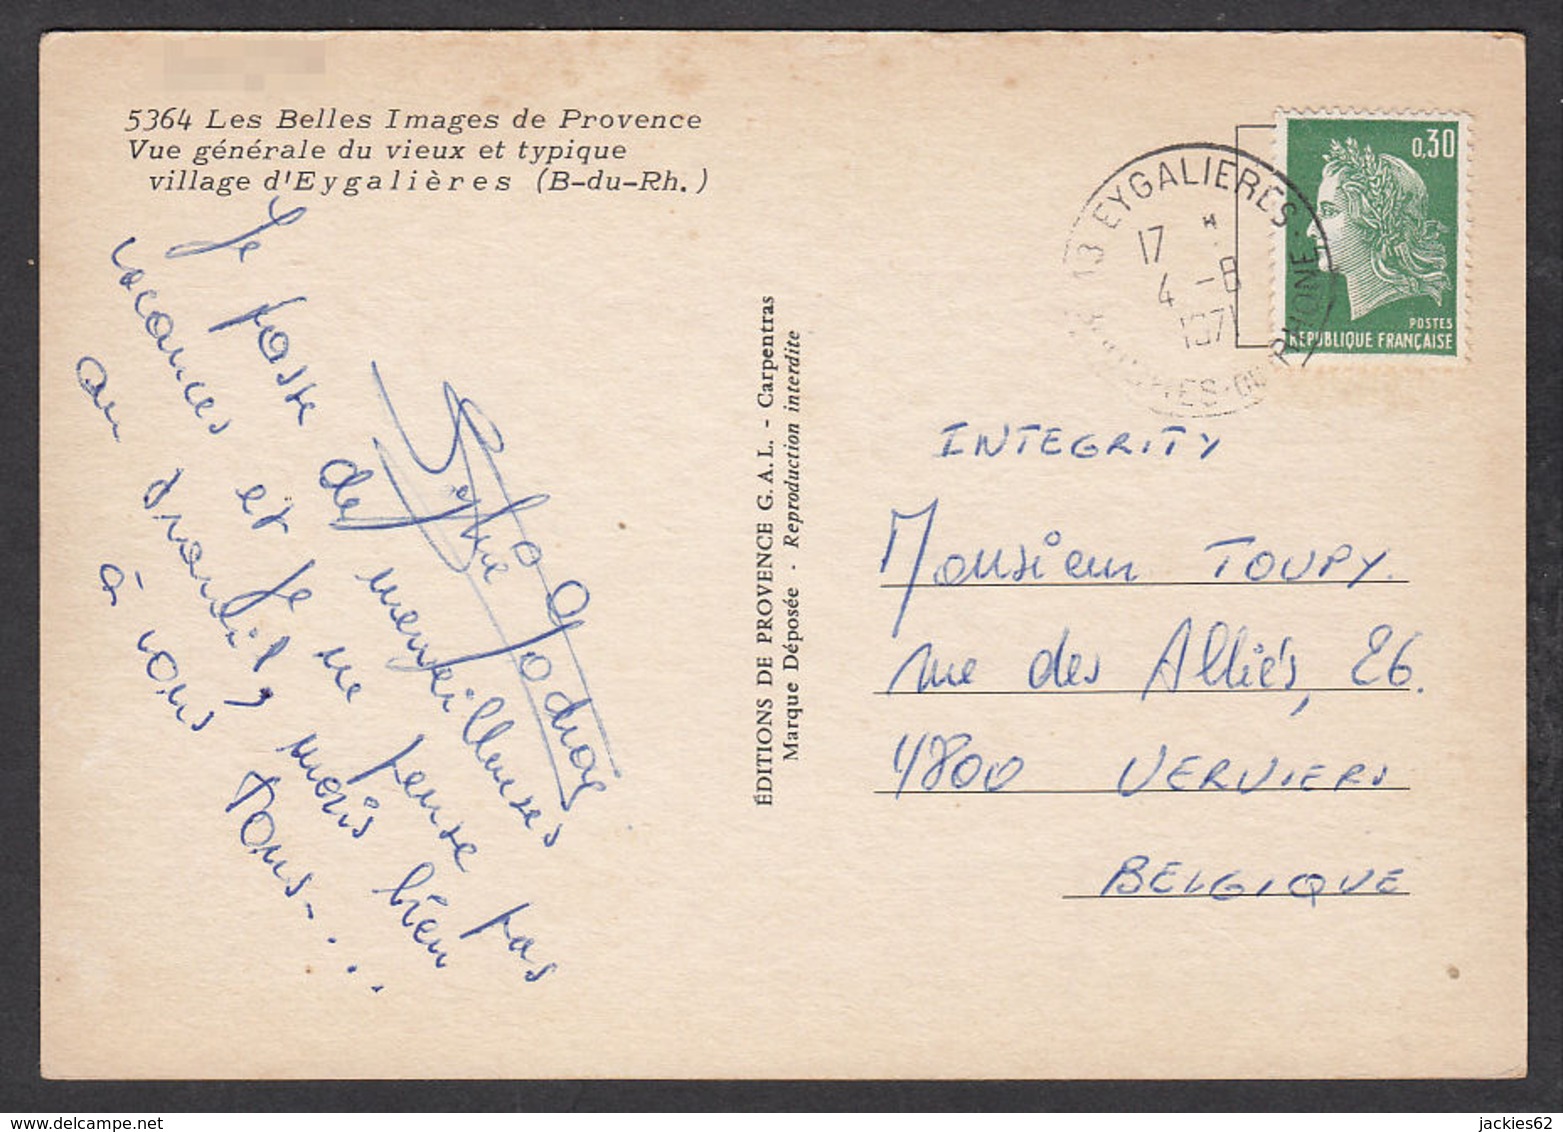 5364 Les Belles Images de Provence
Vue générale du vieux et typique
village d'Eygalières (B-du-Rh.)
Je passe de merveilleuses
vacances et je ne pense pas
au travail, mais bien
à vous tous....
Sylvie
ÉDITIONS DE PROVENCE G.A.L. - Carpentras
Marque Déposée - Reproduction interdite
13 EYGALIERES
17 H
4 -8
1971
BOUCHES-DU-RHONE
0,30
POSTES
REPUBLIQUE FRANÇAISE
INTEGRITY
Monsieur TOUPY.
rue des Alliés, 26.
4800 VERVIERS
BELGIQUE
jackies62